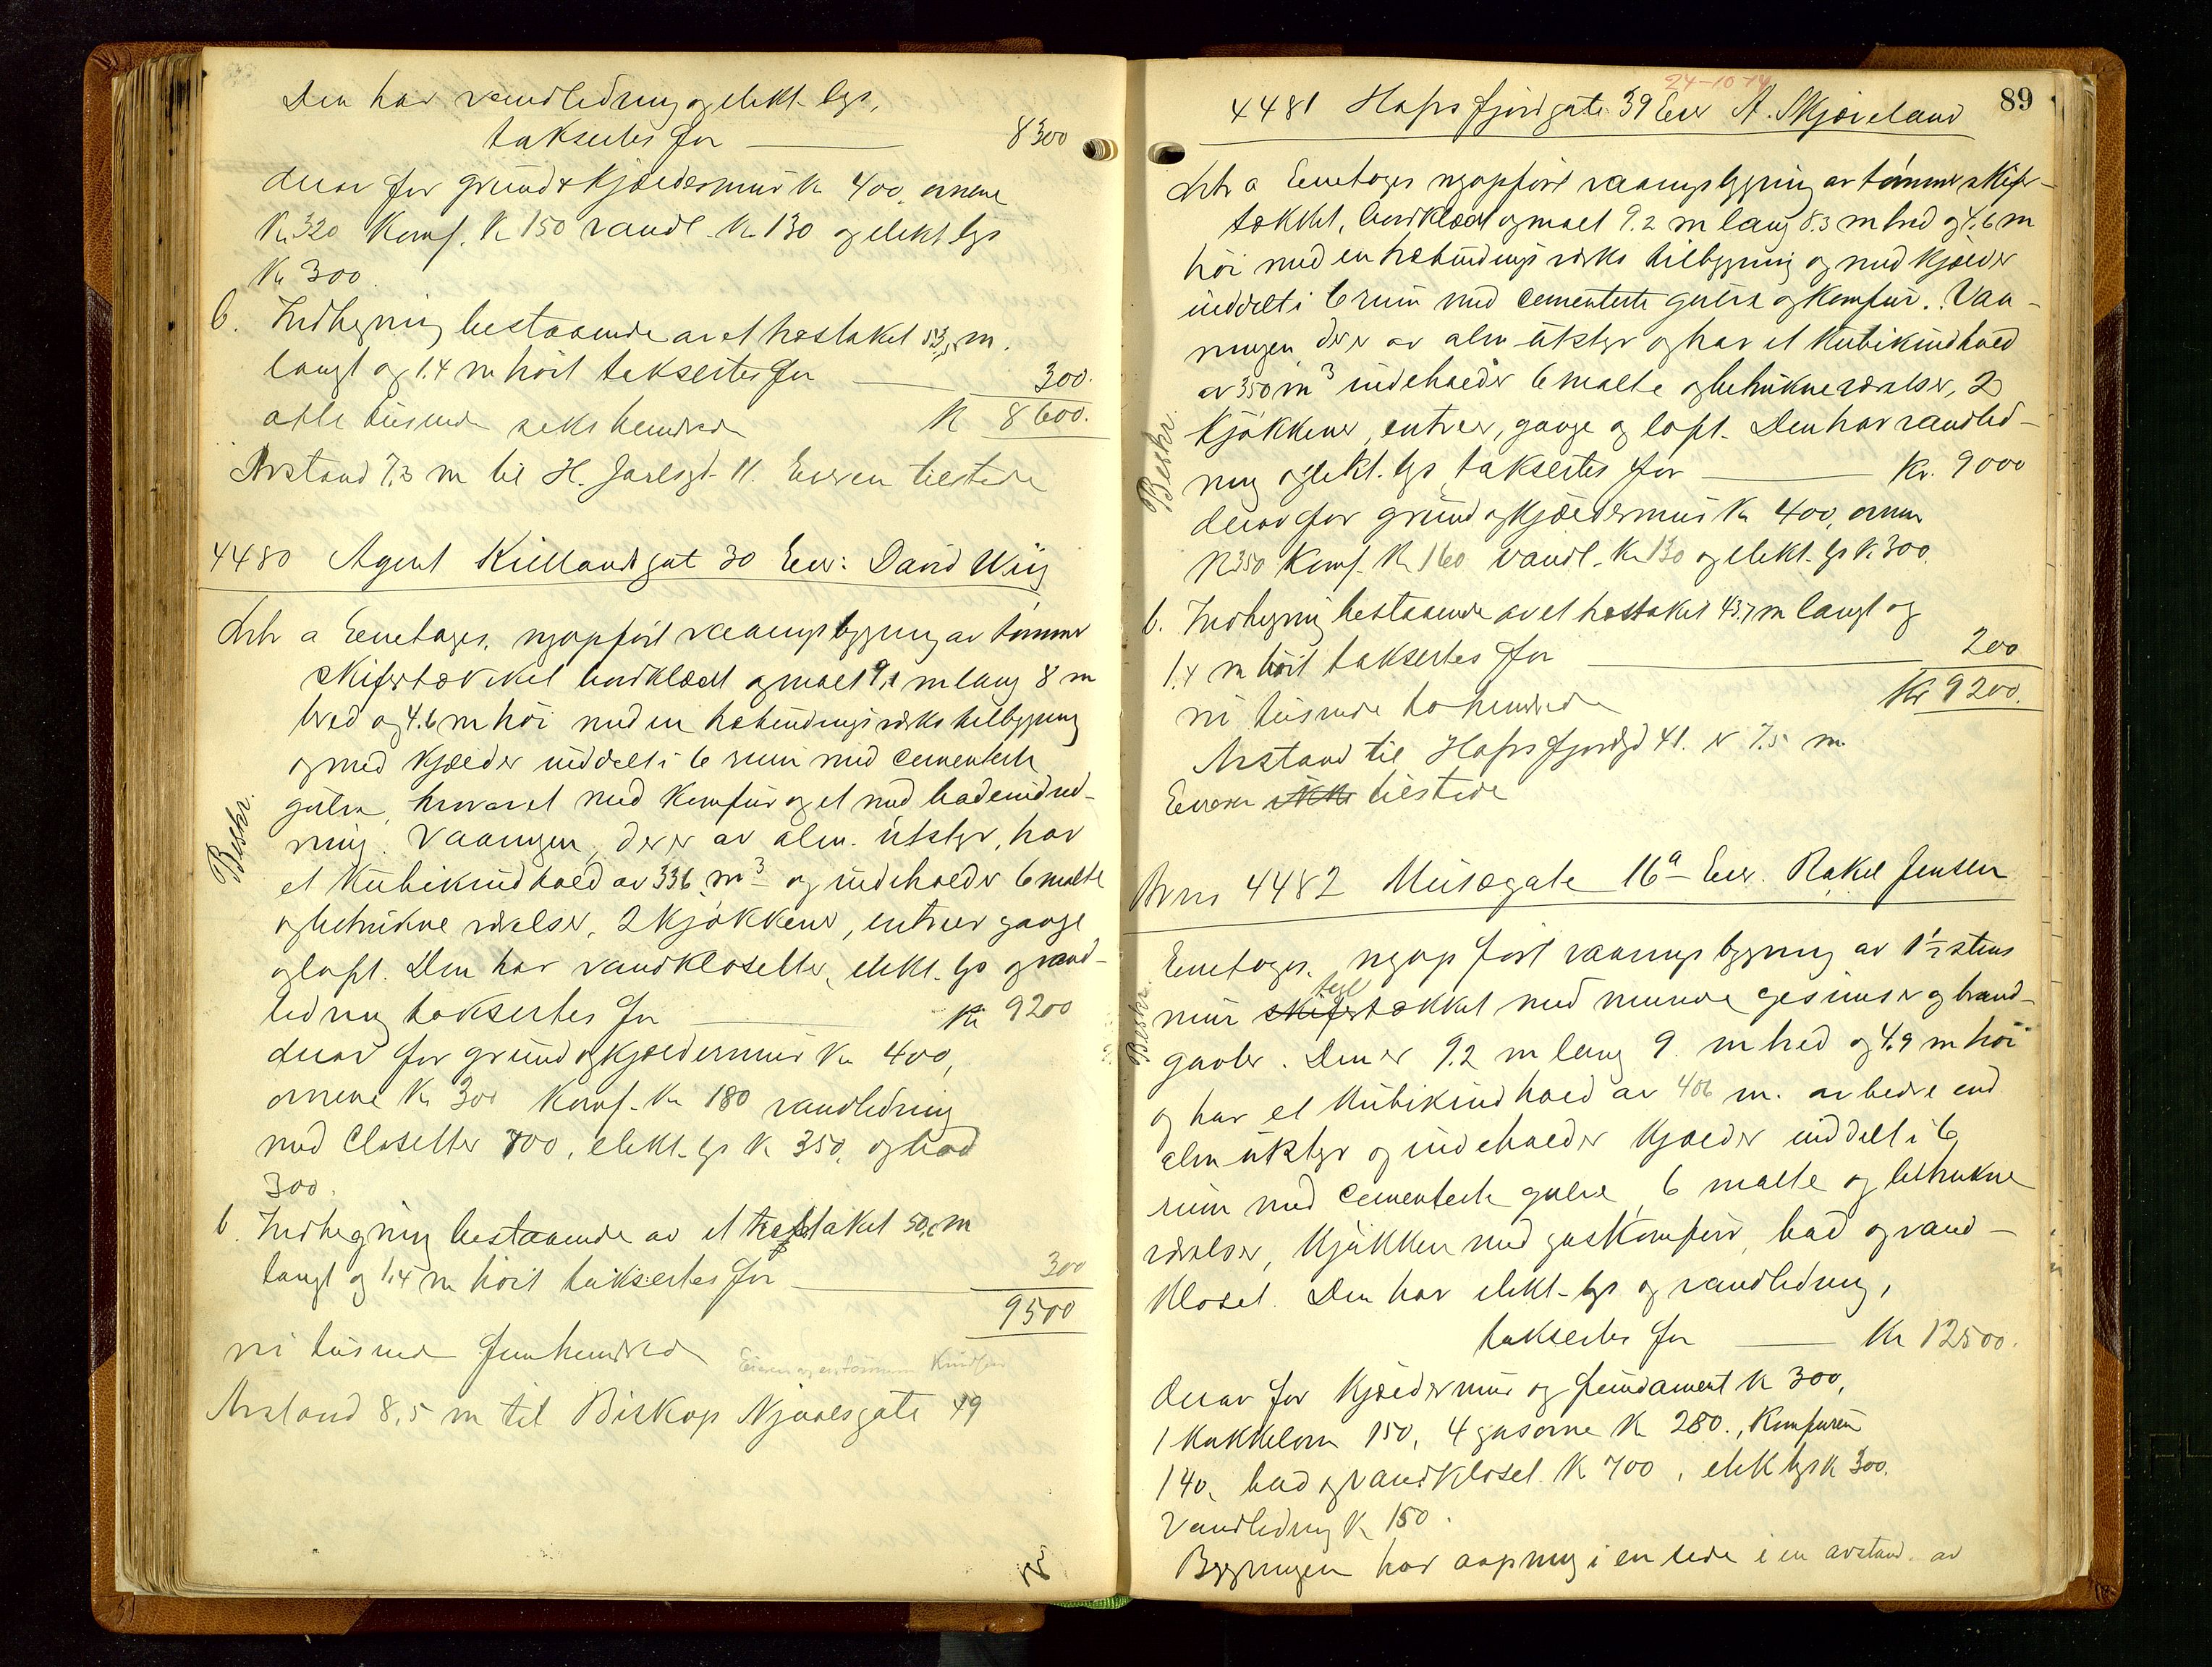 Den har vandledning og elekt. lys,
taksertes for 8300
derav for grund & kjældermur Kr 400, ovnene
Kr. 320 Komf. Kr 150 vandl. Kr 130 og elekt lys
Kr 300.
b. Indhegning bestaaende av et træstaket 53,5 m.
langt og 1.4 m höit taksertes for 300.
otte tusinde seks hundrede Kr 8600.
Avstand 7,3 m til H. Jarlsgt. 11. Eieren tilstede
4480 Agent Kiellandsgat 30 Eier: David Wiig
Litr a Eenetages, nyopfört vaaningsbygning av tömmer
skifertækket bordklædt og malt 9,1 m lang 8 m
bred og 4.6 m höi med en utbindingsverks tilbygning
og med kjælder inddelt i 6 rum med cementerte
gulve, hvorav et med komfur og et med badeindred-
ning. Vaaningen, der er av alm. utstyr, har
et Kubikindhold av 336 m³ og indeholder 6 malte
og betrukne værelser, 2 kjøkkener, entreer gange
og loft. Den har vandklosetter, elekt. lys og vand-
ledning taksertes for Kr 9200
derav for grund og kjældermur Kr 400,
ovnene Kr 300 Komf. Kr 180 vandledning
med Closetter 700, elekt. lys Kr 350, og bad
300.
b. Indhegning bestaaende av et træstaket 50,5 m
langt og 1,4 m höit taksertes for 300
9500
ni tusinde femhundrede
Avstand 8,5 m til Biskop Njaalsgate 49
Beskr.
24-10-14
89
4481 Hafrsfjordgate 39 Eier A. Skjæveland
Litr a Eenetages nyopfört vaaningsbygning av tömmer skifer-
tækket, bordklædt og malt 9.2 m lang 8.3 m bred og 4,6 m
höi med en utbindingsverks tilbygning og med kjælder
inddelt i 6 rum med cementerte gulve og Komfur. Vaa-
ningen der er av alm utstyr og har et Kubikindhold
av 350 m³ indeholder 6 malte og betrukne værelser, 2
Kjökkener, entreer, gange og loft. Den har vandled-
ning og elekt. lys taksertes for Kr. 9000
derav for grund og kjældermur Kr 400, ovnene
Kr 350 Komf. Kr 160 vandl. Kr 130 og elekt. lys Kr. 300.
b. Indhegning bestaaende av et træstaket 43.7 m langt og
1.4 m höit taksertes for 200
ni tusinde tohundrede Kr 9200.
Avstand til Hafrsfjordgd 41. er 7.5 m.
Eieren ikke tilstede
Beskr.
Br no 4482 Musægate 16a Eier. Rakel Jensen
Eenetages, nyopfört vaaningsbygning av 1½ stens
mur skifer tegl tækket med murede gesimser og brand-
gavler. Den er 9.2 m lang 9. m bred og 4.9 m höi
og har et Kubikindhold av 406 m. av bedre end
alm utstyr og indeholder kjælder inddelt i 6
rum med cementerte gulve, 6 malte og betrukne
værelser, kjøkken med gaskomfur, bad og vand-
kloset. Den har elekt. lys og vandledning,
taksertes for Kr 12500.
derav for kjældermur og fundament Kr 300,
1 Kakkelovn 150, 4 gasovne Kr 280., Komfuren
140, bad og vandkloset. Kr 700, elek lys Kr 300.
Vandledning Kr 150.
Bygningen har aapning i en side i en avstand av
Beskr.